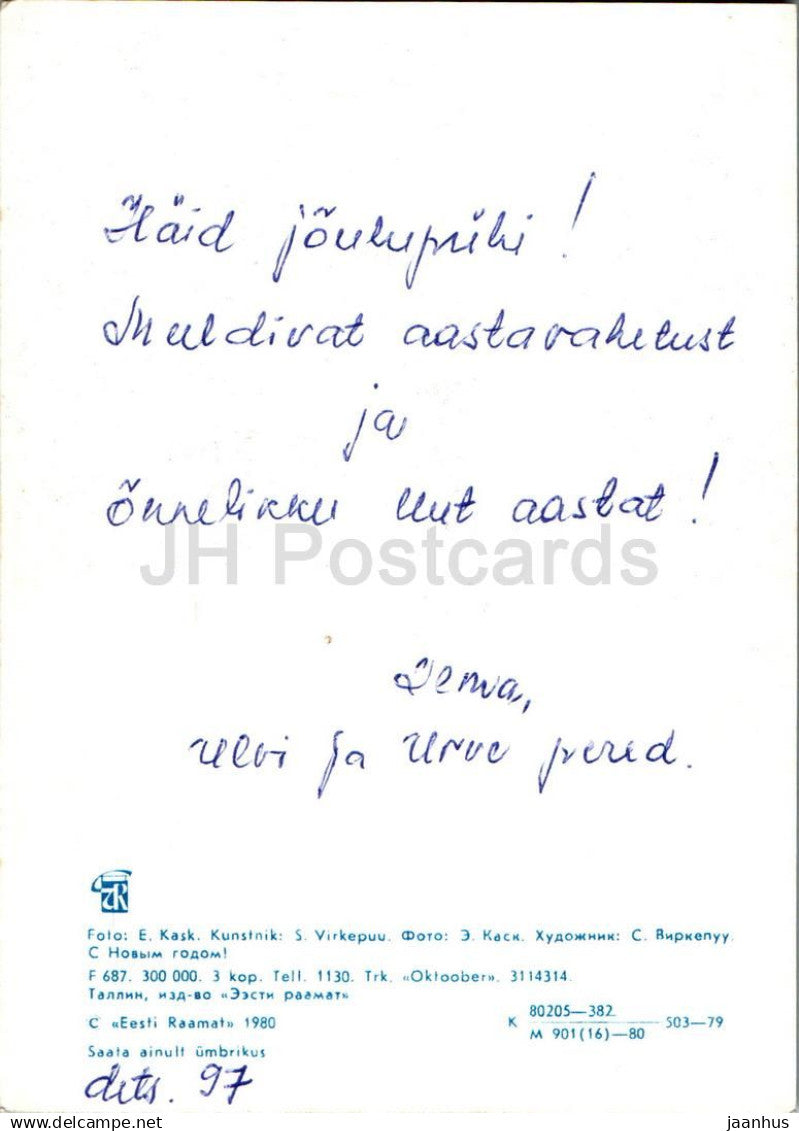 Häid jõulupühi!
Meeldivat aastavahetust
ja
õnnelikku uut aastat!
JH Postcards
Ulvi ja Urve pered.
Foto: E. Kask. Kunstnik: S. Virkepuu. Фото: Э. Каск. Художник: С. Виркепуу.
С Новым годом!
F 687. 300 000. 3 kop. Tell. 1130. Trk. «Oktoober». 3114314.
Таллин, изд-во «Ээсти раамат»
C «Eesti Raamat» 1980
К 80205—382 503—79
М 901(16)—80
Saata ainult ümbrikus
dets. 97
jaanhus
HipPostcard.com